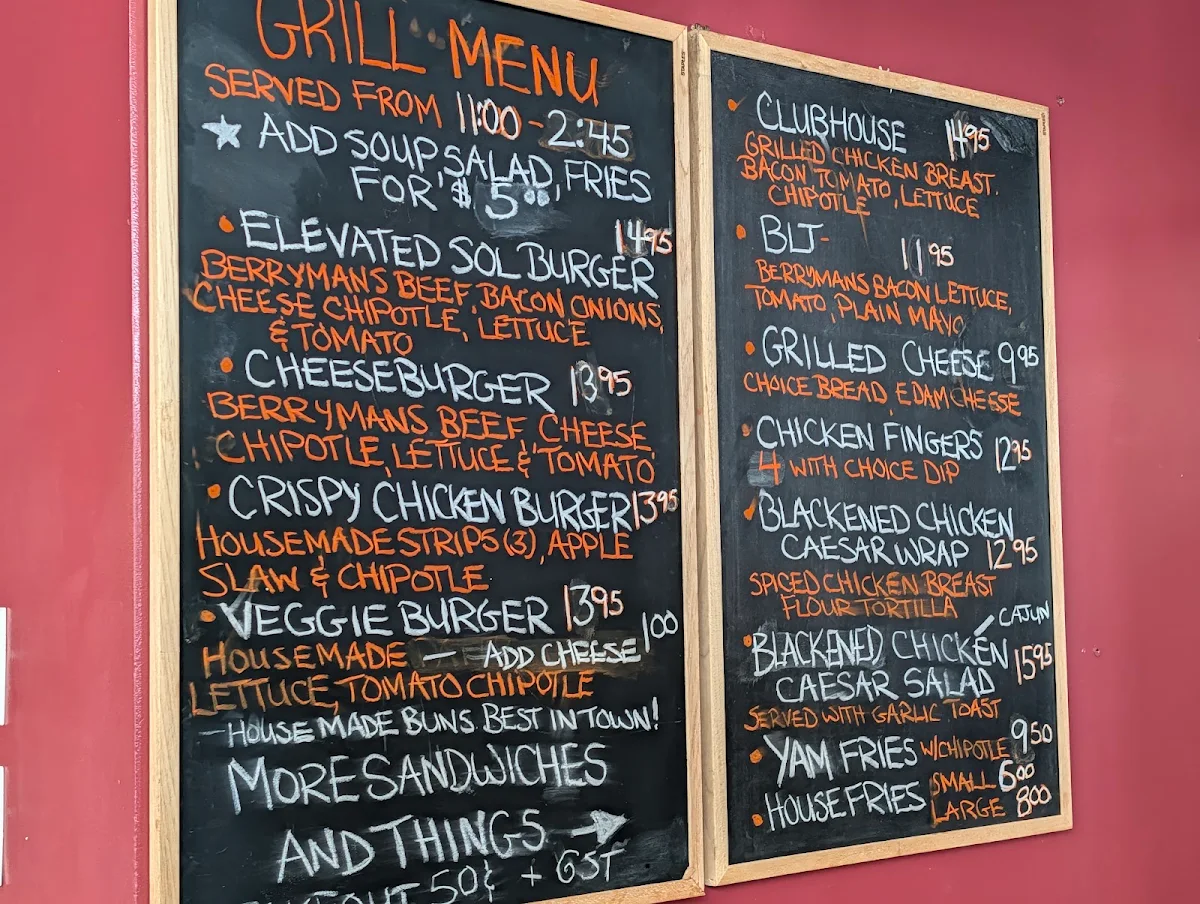 GRILL MENU
SERVED FROM 11:00 - 2:45
★ ADD SOUP, SALAD, FRIES
FOR $5.00
• ELEVATED SOL BURGER 14.95
BERRYMANS BEEF, BACON ONIONS,
CHEESE CHIPOTLE, LETTUCE
& TOMATO
• CHEESEBURGER 13.95
BERRYMANS BEEF CHEESE
CHIPOTLE, LETTUCE & TOMATO
• CRISPY CHICKEN BURGER 13.95
HOUSEMADE STRIPS (3), APPLE
SLAW & CHIPOTLE
• VEGGIE BURGER 13.95
HOUSEMADE — ADD CHEESE 1.00
LETTUCE, TOMATO CHIPOTLE
— HOUSE MADE BUNS. BEST IN TOWN!
MORE SANDWICHES
AND THINGS →
TAKEOUT 50¢ + GST
• CLUBHOUSE 14.95
GRILLED CHICKEN BREAST.
BACON TOMATO, LETTUCE
CHIPOTLE
• BLT - 11.95
BERRYMANS BACON LETTUCE,
TOMATO, PLAIN MAYO
• GRILLED CHEESE 9.95
CHOICE BREAD, EDAM CHEESE
• CHICKEN FINGERS 12.95
4 WITH CHOICE DIP
• BLACKENED CHICKEN
CAESAR WRAP 12.95
SPICED CHICKEN BREAST
FLOUR TORTILLA
CAJUN
• BLACKENED CHICKEN
CAESAR SALAD 15.95
SERVED WITH GARLIC TOAST
• YAM FRIES W/CHIPOTLE 9.50
• HOUSE FRIES SMALL 6.00
LARGE 8.00